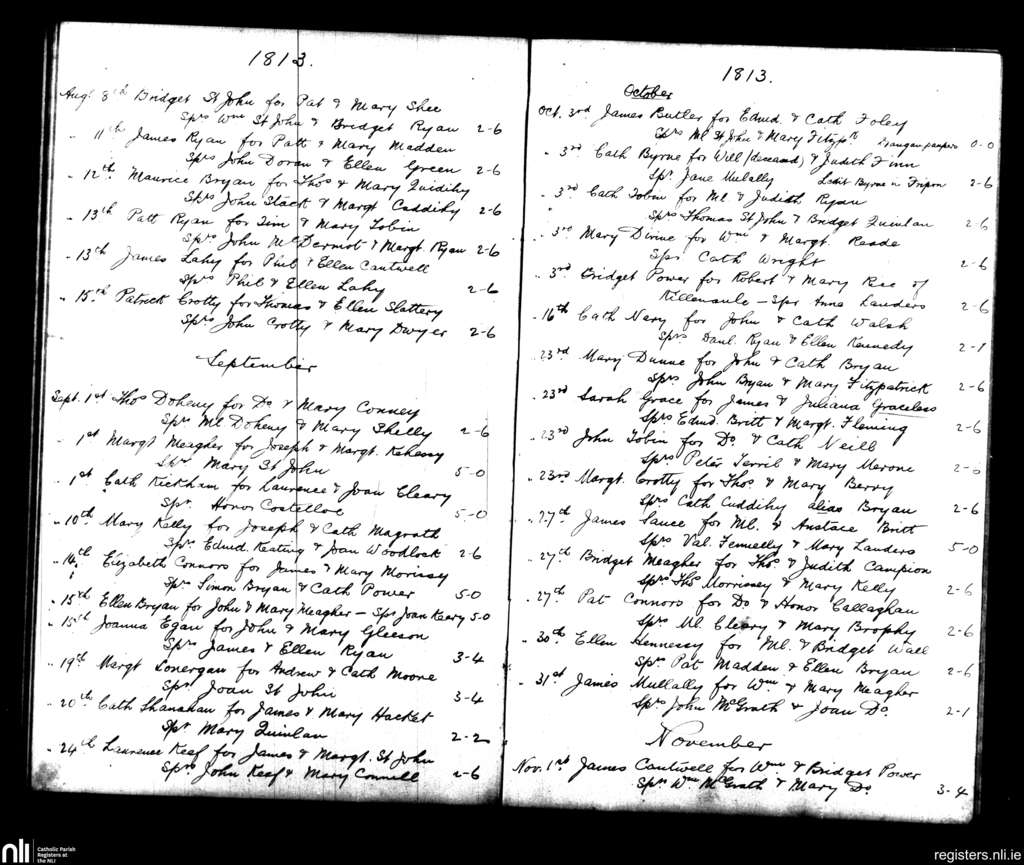 1813.
Augt 8th Bridget St John for Pat & Mary Shee
Sprs Wm St John & Bridget Ryan 2-6
" 11th James Ryan for Patt & Mary Madden
Sprs John Doran & Ellen Green 2-6
" 12th Maurice Bryan for Thos & Mary Quidihy
Sprs John Slack & Margt Caddihy 2-6
" 13th Patt Ryan for Tim & Mary Tobin
Sprs John McDermot & Margt Ryan 2-6
" 13th James Lahy for Phil & Ellen Cantwell
Sprs Phil & Ellen Lahy 2-6
" 15th Patrick Crotty for Thomas & Ellen Slattery
Sprs John Crotty & Mary Dwyer 2-6
September
Sept. 1st Thos Doheny for Do & Mary Conney
Sprs Ml Doheny & Mary Shelly 2-6
" 1st Margt Meagher for Joseph & Margt. Kahessy
Spr Mary St John 5-0
" 1st Cath Kickham for Laurence & Joan Cleary
Spr Honor Costelloe 5-0
" 10th Mary Kelly for Joseph & Cath Magrath
Sprs Edmd. Keating & Joan Woodlock 2-6
" 14th Elizabeth Connors for James & Mary Morissy
Sprs Simon Bryan & Cath Power 5-0
" 15th Ellen Bryan for John & Mary Meagher - Spr Joan Keary 5-0
" 15th Joanna Egan for John & Mary Gleeson
Sprs James & Ellen Ryan 3-4
" 19th Margt Lonergan for Andrew & Cath Moore
Spr Joan St John 3-4
" 20th Cath Shanahan for James & Mary Hacket
Spr Mary Quinlan 2-2
" 24th Laurence Keef for James & Margt. St John
Sprs John Keef & Mary Connell 2-6
1813.
October
Oct. 3rd James Butler for Edmd & Cath Foley
Sprs Ml St John & Mary Fitzpk 0-0
" 3rd Cath Byrne for Will (deceased) & Judith Finn
Spr Jane Mulally Byrne in 2-6
" 3rd Cath Tobin for Ml & Judith Ryan
Sprs Thomas St John & Bridget Quinlan 2-6
" 3rd Mary Divine for Wm & Margt. Reade
Spr Cath Wright 2-6
" 3rd Bridget Power for Robert & Mary Rae of
Killenaule - Spr Anna Landers 2-6
" 16th Cath Nary for John & Cath Walsh
Sprs Danl Ryan & Ellen Kennedy 2-1
" 23rd Mary Dunne for John & Cath Bryan
Sprs John Bryan & Mary Fitzpatrick 2-6
" 23rd Sarah Grace for James & Juliana Graceless
Sprs Edmd. Britt & Margt. Fleming 2-6
" 23rd John Tobin for Do. & Cath Neill
Sprs Peter Terril & Mary Merone
" 23rd Margt. Crotty for Thos & Mary Berry
Sprs Cath Cuddihy alias Bryan 2-6
" 27th James Sause for Ml. & Anstace Britt
Sprs Val. Fennelly & Mary Landers 5-0
" 27th Bridget Meagher for Thos & Judith Campion
Sprs Thos Morrissey & Mary Kelly 2-6
" 27th Pat Connors for Do & Honor Callaghan
Sprs Ml Cleary & Mary Brophy 2-6
" 30th Ellen Hennessy for Ml. & Bridget Wall
Sprs Pat Madden & Ellen Bryan 2-6
" 31st James Mullally for Wm & Mary Meagher
Sprs John McGrath & Joan Do. 2-1
November
Nov. 1st James Cantwell for Wm & Bridget Power
Sprs Wm McGrath & Mary Do 3-4
nli Catholic Parish
Registers at
the NLI
registers.nli.ie